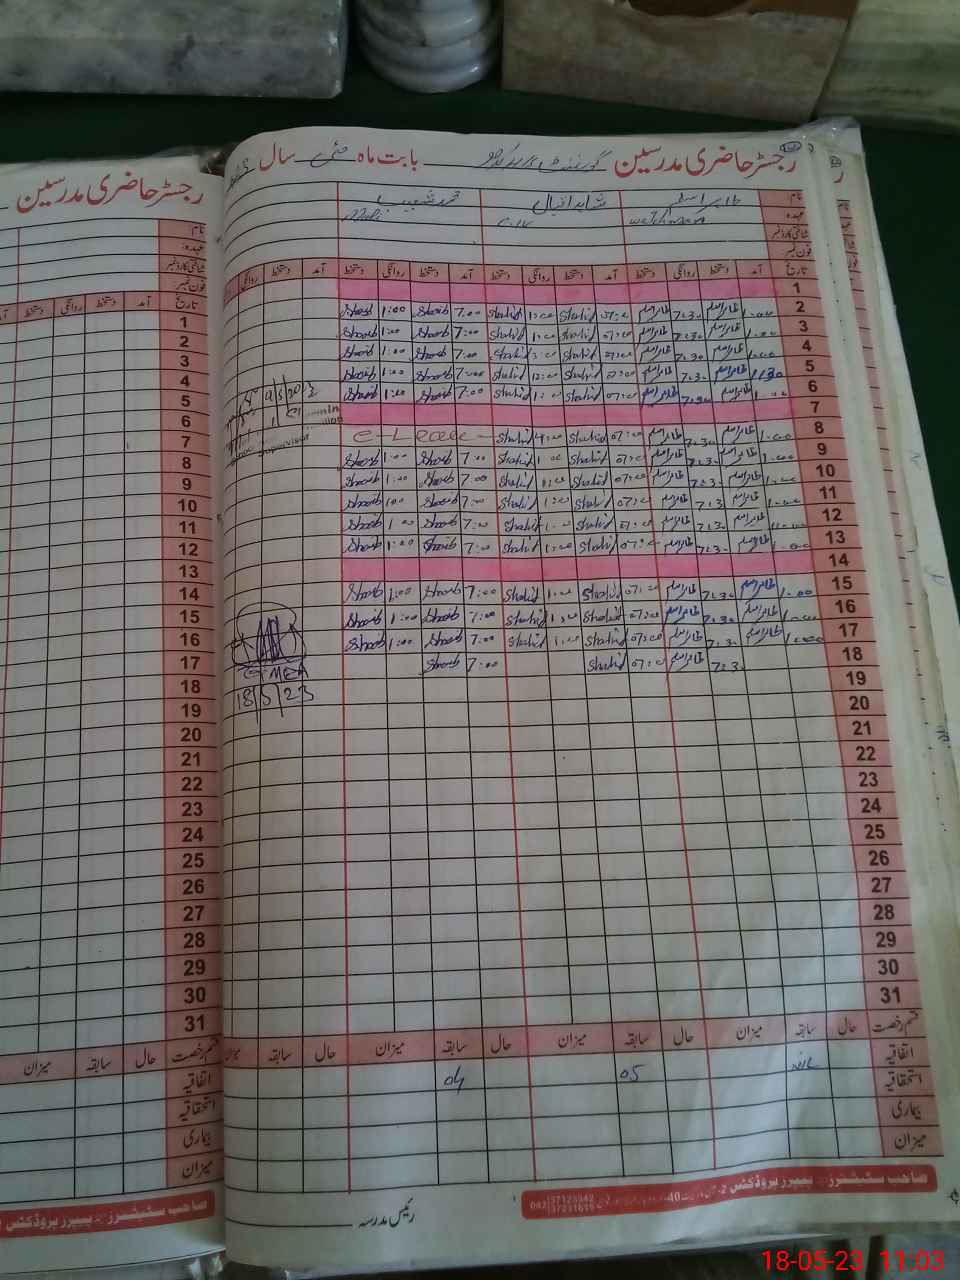 رجسٹر حاضری مدرسین گورنمنٹ بابت ماہ مئی سال
نام طاہر اسلم شاہد اقبال محمد شعیب
عہدہ watchman C.IV
شناختی کارڈ نمبر
فون نمبر
تاریخ آمد دستخط روانگی دستخط آمد دستخط روانگی دستخط آمد دستخط روانگی دستخط آمد دستخط روانگی
1
2 1:00 طاہر اسلم 7:30 طاہر اسلم 07:00 Shahid 1:00 Shahid 7:00 Shoaib 1:00 Shoaib
3 1:00 طاہر اسلم 7:30 طاہر اسلم 07:00 Shahid 1:00 Shahid 7:00 Shoaib 1:00 Shoaib
4 1:00 طاہر اسلم 7:30 طاہر اسلم 07:00 Shahid 1:00 Shahid 7:00 Shoaib 1:00 Shoaib
5 1:30 طاہر اسلم 7:30 طاہر اسلم 07:00 Shahid 12:00 Shahid 7:00 Shoaib 1:00 Shoaib
6 1:00 طاہر اسلم 7:30 طاہر اسلم 07:00 Shahid 1:00 Shahid 7:00 Shoaib 1:00 Shoaib
7
8 1:00 طاہر اسلم 7:30 طاہر اسلم 07:00 Shahid Shahid c-Leave
9 1:00 طاہر اسلم 7:30 طاہر اسلم 07:00 Shahid 1:00 Shahid 7:00 Shoaib 1:00 Shoaib
10 1:00 طاہر اسلم 7:30 طاہر اسلم 07:00 Shahid 1:00 Shahid 7:00 Shoaib 1:00 Shoaib
11 1:00 طاہر اسلم 7:30 طاہر اسلم 07:00 Shahid 1:00 Shahid 7:00 Shoaib 1:00 Shoaib
12 1:00 طاہر اسلم 7:30 طاہر اسلم 07:00 Shahid 1:00 Shahid 7:00 Shoaib 1:00 Shoaib
13 1:00 طاہر اسلم 7:30 طاہر اسلم 07:00 Shahid 1:00 Shahid 7:00 Shoaib 1:00 Shoaib
14
15 1:00 طاہر اسلم 7:30 طاہر اسلم 07:00 Shahid 1:00 Shahid 7:00 Shoaib 1:00 Shoaib
16 1:00 طاہر اسلم 7:30 طاہر اسلم 07:00 Shahid 1:00 Shahid 7:00 Shoaib 1:00 Shoaib
17 1:00 طاہر اسلم 7:30 طاہر اسلم 07:00 Shahid 1:00 Shahid 7:00 Shoaib 1:00 Shoaib
18 7:30 طاہر اسلم 07:00 Shahid 7:00 Shoaib
MEA
18/5/23
19
20
21
22
23
24
25
26
27
28
29
30
31
قسم رخصت حال سابقہ میزان حال سابقہ میزان حال سابقہ میزان حال سابقہ میزان
اتفاقیہ NIL 05 04
استحقاقیہ
بیماری
میزان
صاحب سٹیشنرز - پیپر پروڈکٹس
042 37123542
37231616
رئیس مدرسہ
رجسٹر حاضری مدرسین
نام
عہدہ
شناختی کارڈ نمبر
فون نمبر
تاریخ آمد دستخط روانگی دستخط
1
2
3
4
5
6
7
8
9
10
11
12
13
14
15
16
17
18
19
20
21
22
23
24
25
26
27
28
29
30
31
قسم رخصت حال سابقہ میزان
اتفاقیہ
استحقاقیہ
بیماری
میزان
صاحب سٹیشنرز - پیپر پروڈکٹس
18-05-23 11:03